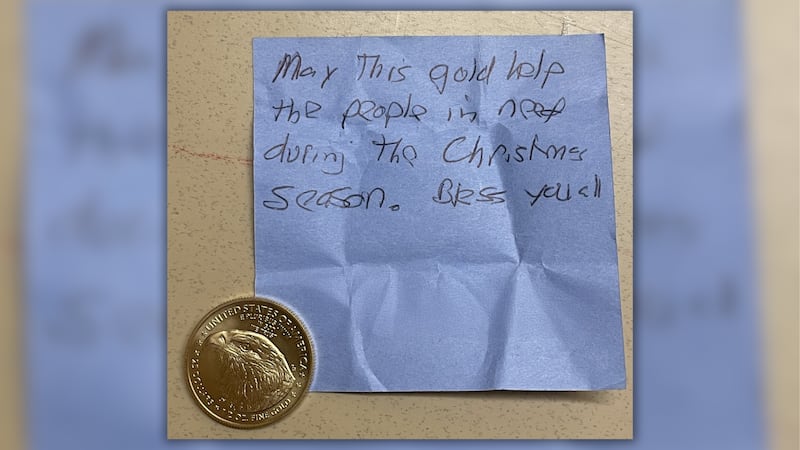 May This gold help
the people in need
during The Christmas
Season. Bless you all
UNITED STATES OF AMERICA
E PLURIBUS UNUM
OZ. FINE GOLD